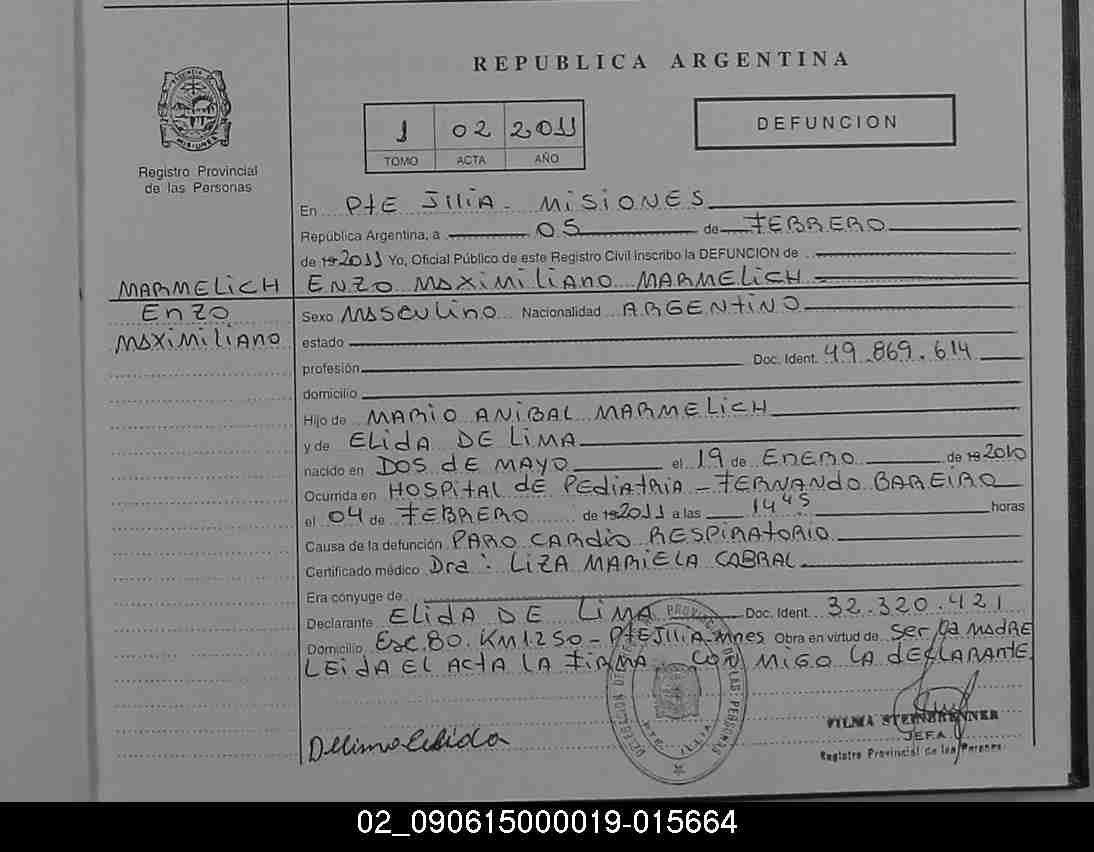 REPUBLICA ARGENTINA
PROVINCIA DE MISIONES
Registro Provincial
de las Personas
1 02 2011
TOMO ACTA AÑO
DEFUNCION
En PtE Illia - MISIONES
República Argentina, a 05 de FEBRERO
de 19 2011 Yo, Oficial Público de este Registro Civil inscribo la DEFUNCION de
MARMELICH
ENZO
MAXIMILIANO
ENZO MAXIMILIANO MARMELICH
Sexo MASCULINO Nacionalidad ARGENTINO
estado
profesión Doc. Ident. 49.869.614
domicilio
Hijo de MARIO ANIBAL MARMELICH
y de ELIDA DE LIMA
nacido en DOS de MAYO el 19 de ENERO de 19 2010
Ocurrida en HOSPITAL de PEDIATRIA - FERNANDO BAREIRO
el 04 de FEBRERO de 19 2011 a las 14 45 horas
Causa de la defunción PARO CARDIO RESPIRATORIO
Certificado médico Dra: LIZA MARIELA CABRAL
Era cónyuge de
Declarante ELIDA DE LIMA Doc. Ident. 32.320.421
Domicilio Esc. 80. KM1250 - PtE Illia - Mnes Obra en virtud de ser la MADRE
LEIDA EL ACTA LA FIRMA CON MIGO LA DECLARANTE
Delima Elida
DE LAS PERSONAS
VILMA STEINBRENNER
JEFA
Registro Provincial de las Personas
02_090615000019-015664